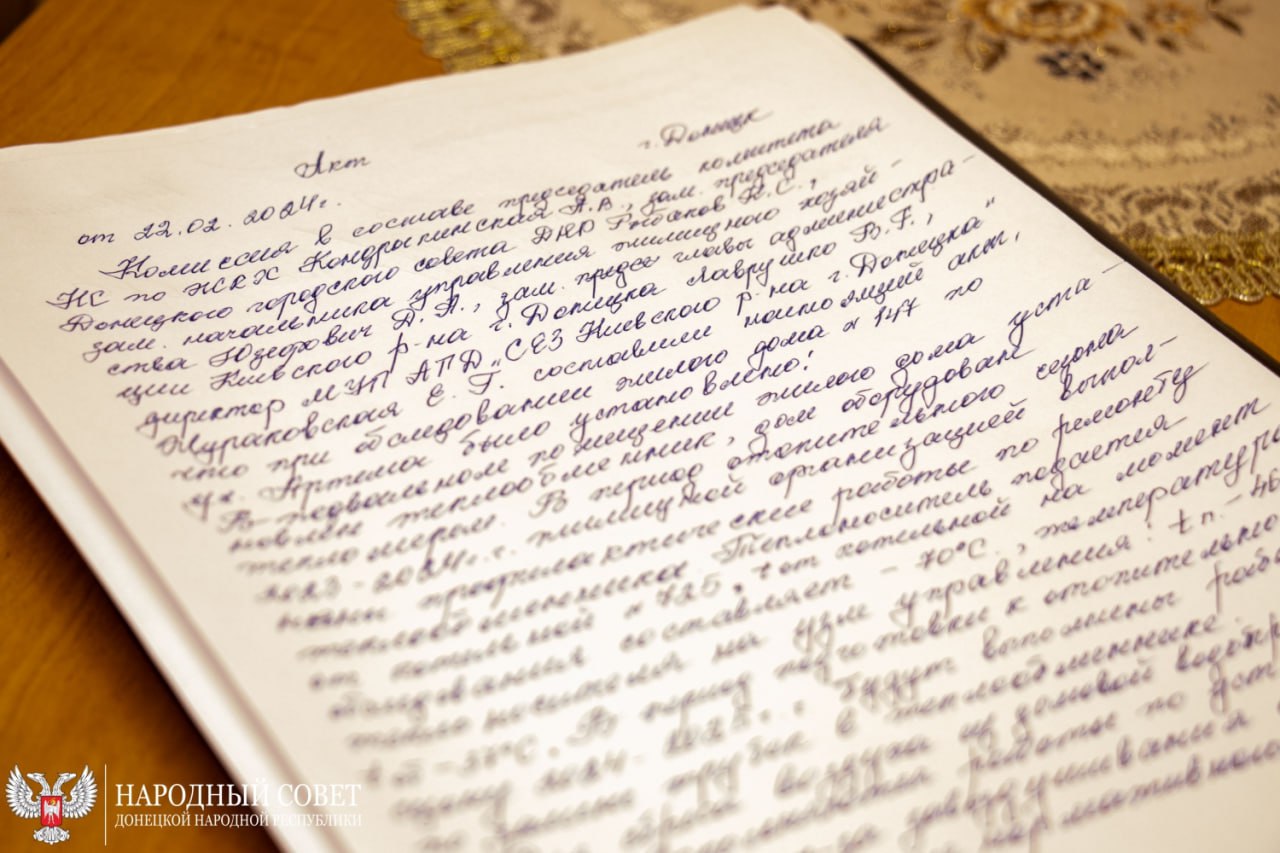 Акт
г. Донецк
от 22.02.2024г.
Комиссия в составе председатель комитета
НС по ЖКХ Кондрыкинская Л.А., зам. председателя
Донецкого городского совета ДНР Рыбаков К.С.,
зам. начальника управления жилищного хозяй-
ства Юзефович Д.А., зам. главы администра-
ции Киевского р-на г. Донецка Лаврушко В.Г.,
директор МУП АПД „СЕЗ Киевского р-на г. Донецка"
Жураковская Е.Г. составили настоящий акт,
что при обследовании жилого дома № 147 по
ул. Артема было установлено:
В подвальном помещении жилого дома уста-
новлен теплообменник, дом оборудован
тепломером. В период отопительного сезона
2023-2024г.г. жилищной организацией выпол-
нены профилактические работы по ремонту
теплообменника. Теплоноситель подается
от котельной № 725, t от котельной на момент
составляет - 70°С., температуры
теплоносителя на узле управления: t п. - 46
В период подготовки к отопительно
2024- будут выполнены рабо
трубок в теплообменнике.
воздуха из домовой
работы по уст
НАРОДНЫЙ СОВЕТ
ДОНЕЦКОЙ НАРОДНОЙ РЕСПУБЛИКИ